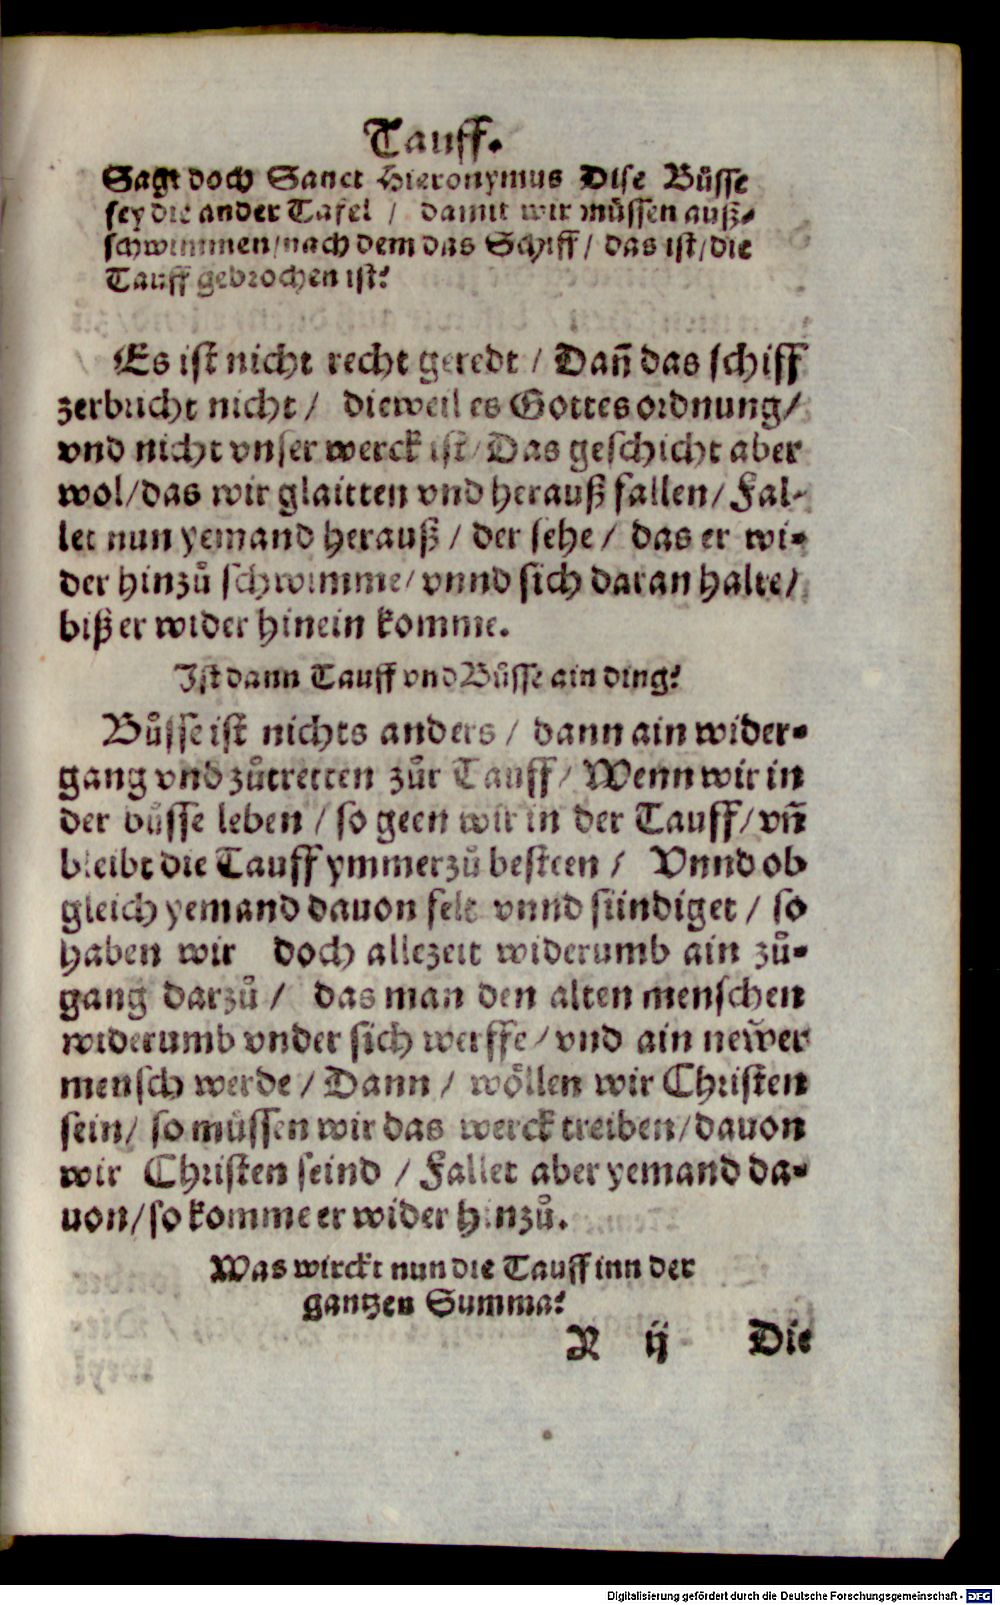 Tauff.
Sagt doch Sanct Hieronymus Dise Bůsse
sey die ander Tafel / damit wir můssen auß-
schwimmen/nach dem das Schiff / das ist/die
Tauff gebrochen ist?
Es ist nicht recht geredt / Dañ das schiff
zerbricht nicht / dieweil es Gottes ordnung/
vnd nicht vnser werck ist/Das geschicht aber
wol/das wir glaitten vnd herauß fallen/Fal-
let nun yemand herauß / der sehe / das er wi-
der hinzů schwimme/ vnnd sich daran halte/
biß er wider hinein komme.
Ist dann Tauff vnd Bůsse ain ding?
Bůsse ist nichts anders / dann ain wider-
gang vnd zůtretten zůr Tauff/ Wenn wir in
der bůsse leben / so geen wir in der Tauff/ vñ
bleibt die Tauff ymmerzů besteen / Vnnd ob
gleich yemand dauon felt vnnd sündiget / so
haben wir doch allezeit widerumb ain zů-
gang darzů / das man den alten menschen
widerumb vnder sich werffe / vnd ain newer
mensch werde / Dann / wöllen wir Christen
sein/ so müssen wir das werck treiben/dauon
wir Christen seind / Fallet aber yemand da-
uon/so komme er wider hinzů.
Was wirckt nun die Tauff inn der
gantzen Summa?
R ij Die
Digitalisierung gefördert durch die Deutsche Forschungsgemeinschaft - DFG